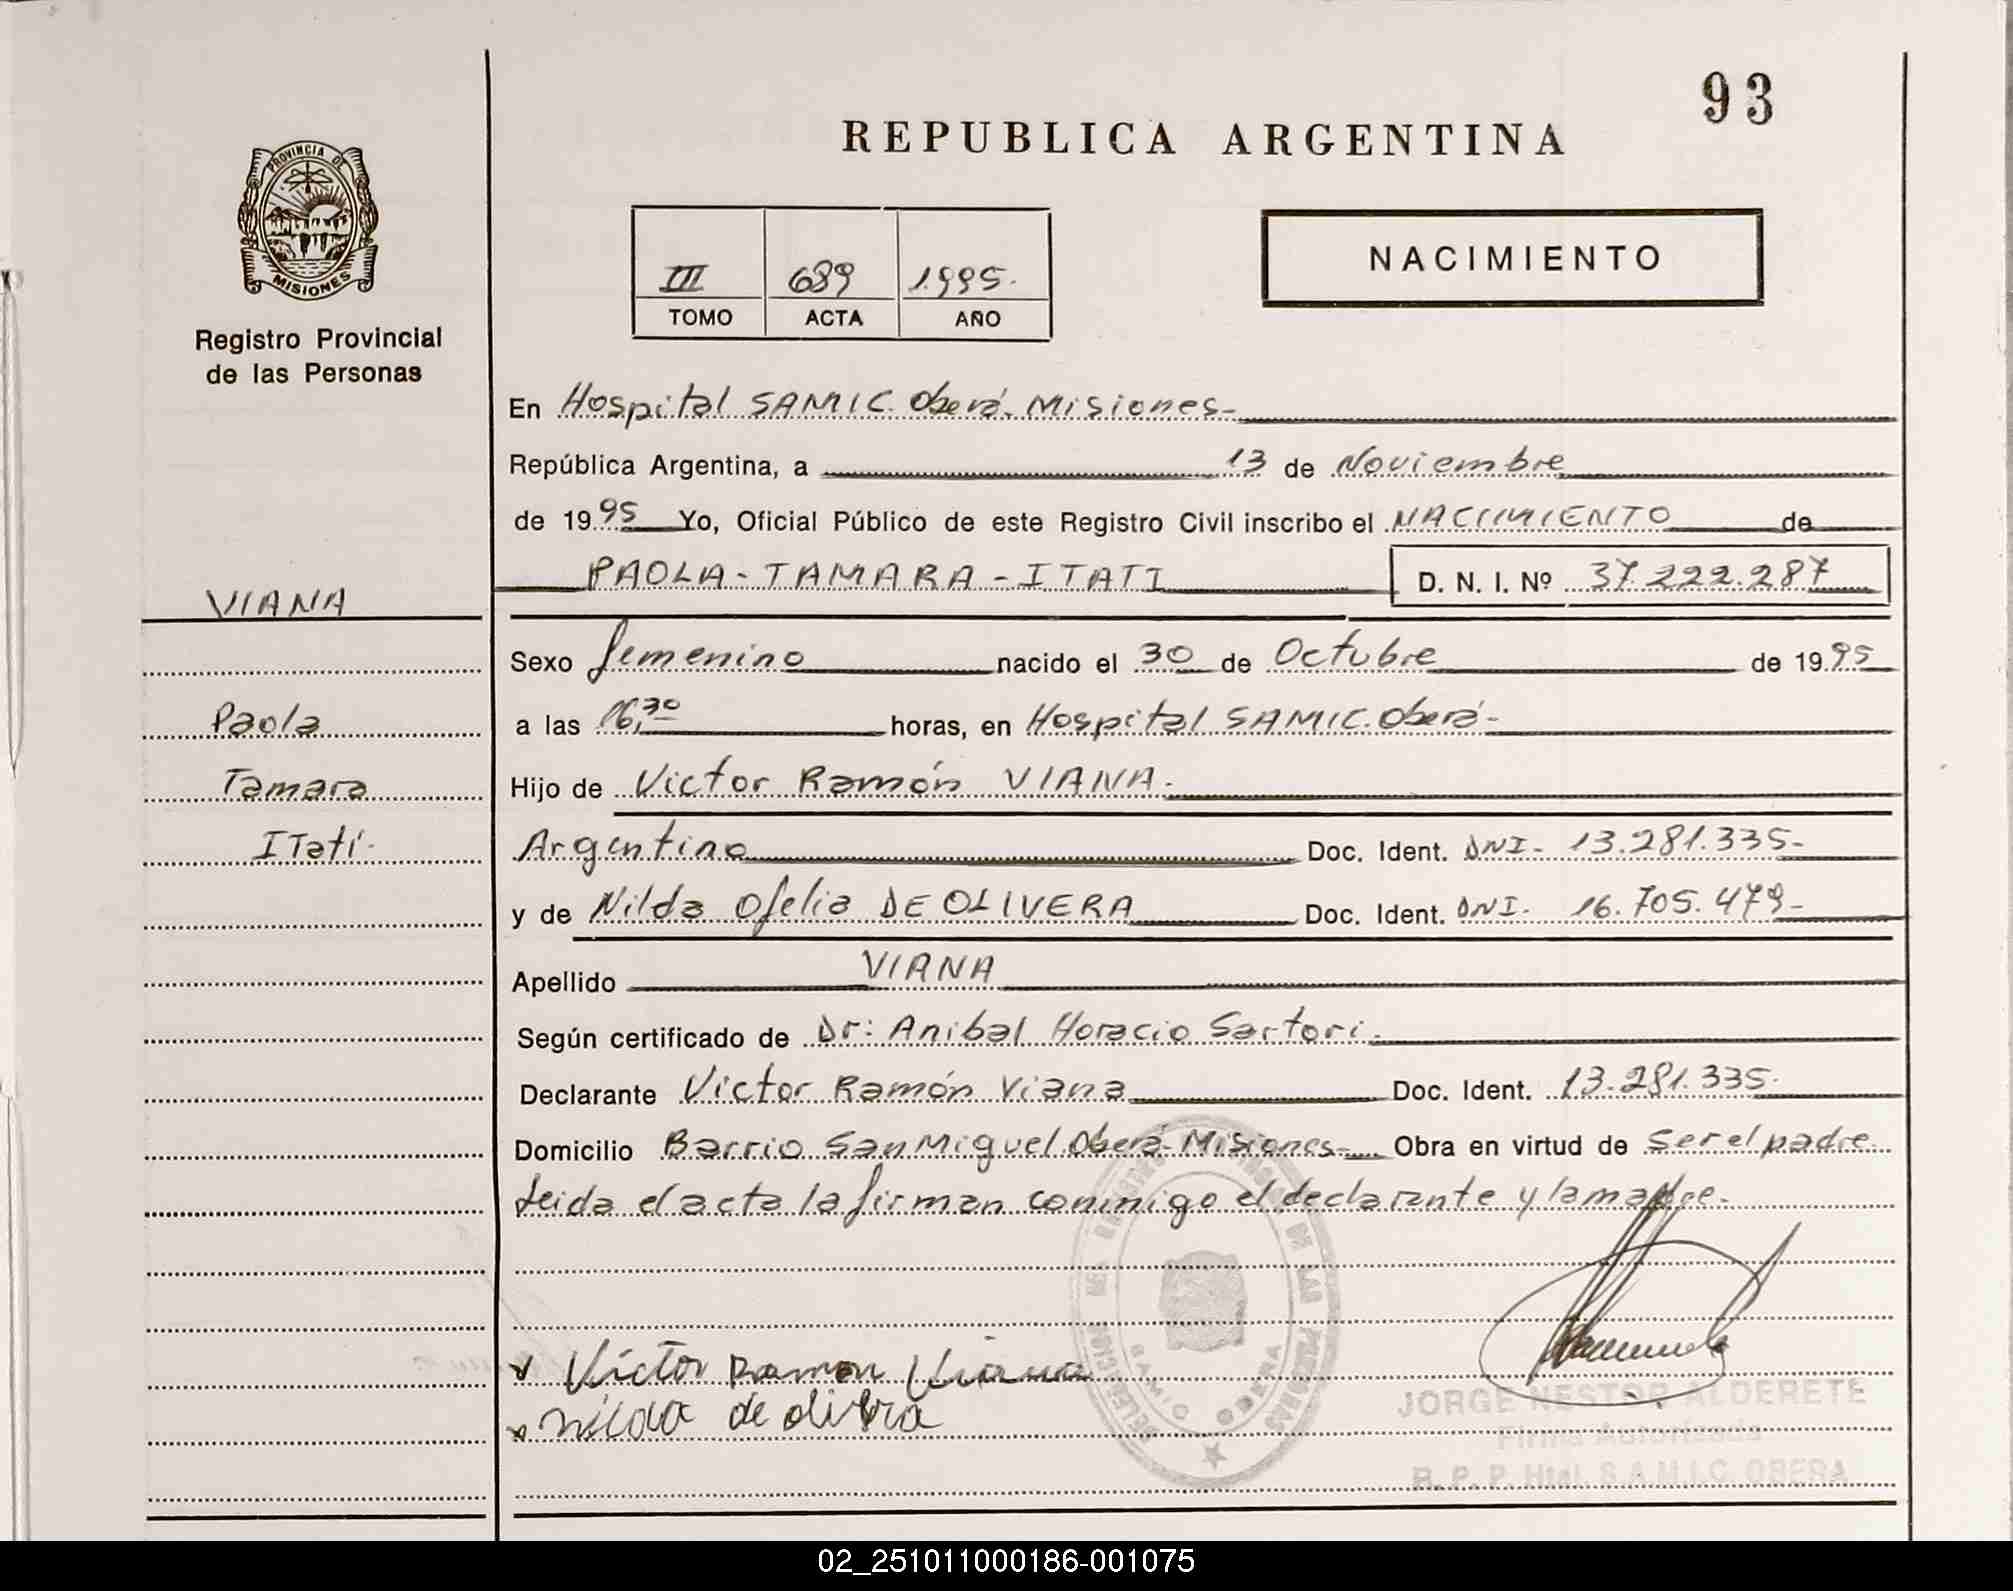 93
REPUBLICA ARGENTINA
PROVINCIA DE
MISIONES
Registro Provincial
de las Personas
III 689 1.995.
TOMO ACTA AÑO
NACIMIENTO
En Hospital SAMIC. Oberá. Misiones-
República Argentina, a 13 de Noviembre
de 1995 Yo, Oficial Público de este Registro Civil inscribo el NACIMIENTO de
PAOLA-TAMARA-ITATI D. N. I. Nº 37.222.287
VIANA
Sexo femenino nacido el 30 de Octubre de 1995
Paola
a las 16,30 horas, en Hospital SAMIC. Oberá-
Tamara
Hijo de Victor Ramón VIANA.
ITatí.
Argentino Doc. Ident. DNI- 13.281.335-
y de Nilda Ofelia DE OLIVERA Doc. Ident. DNI. 16.705.479-
Apellido VIANA
Según certificado de Dr: Anibal Horacio Sartori.
Declarante Victor Ramón Viana Doc. Ident. 13.281.335.
Domicilio Barrio San Miguel. Oberá-Misiones- Obra en virtud de ser el padre
Leida el acta la firman conmigo el declarante y la madre.
Victor Ramon Viana
nilda de olivera
JORGE NESTOR ALDERETE
Firma Autorizada
R. P. P. Htal. S.A.M.I.C. OBERA
02_251011000186-001075